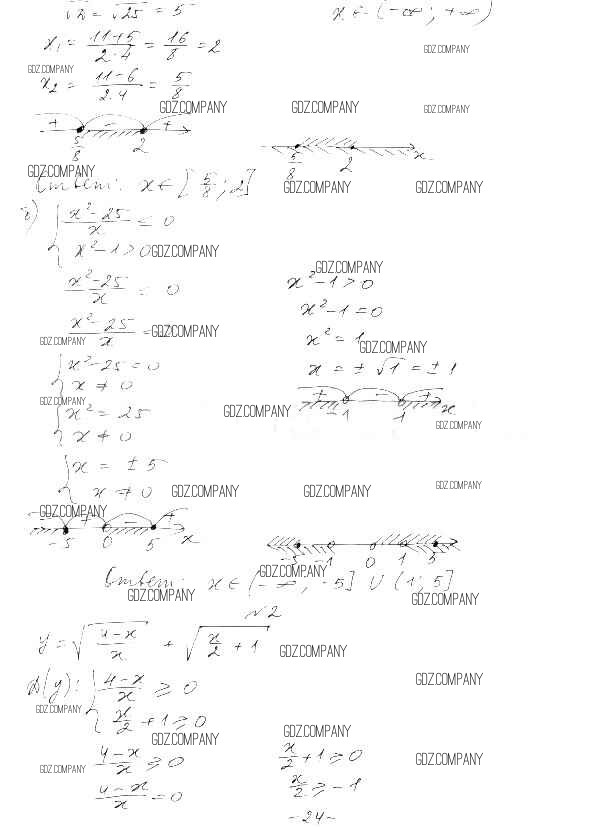 √D = √25 = 5
x ∈ (-∞; +∞)
x₁ = (11+5)/(2·4) = 16/8 = 2
GDZ.COMPANY
GDZ.COMPANY
x₂ = (11-6)/(2·4) = 5/8
GDZ.COMPANY GDZ.COMPANY GDZ.COMPANY
+ - +
5/8 2
5/8 2 x
GDZ.COMPANY
Ответ: x ∈ [5/8; 2]
GDZ.COMPANY GDZ.COMPANY
{ (x²-25)/x ≤ 0
x²-1 > 0
GDZ.COMPANY
GDZ.COMPANY
(x²-25)/x ≤ 0
x²-1 > 0
x²-1 = 0
(x²-25)/x =
GDZ.COMPANY
GDZ.COMPANY
x² = 1
GDZ.COMPANY
{ x²-25 = 0
x ≠ 0
x = ±√1 = ±1
GDZ.COMPANY
+ - +
-1 1 x
GDZ.COMPANY
GDZ.COMPANY
{ x² = 25
x ≠ 0
{ x = ±5
x ≠ 0
GDZ.COMPANY GDZ.COMPANY GDZ.COMPANY
GDZ.COMPANY
+ - +
-5 0 5 x
-1 0 1 5
GDZ.COMPANY
Ответ: x ∈ (-∞; -5] ∪ (1; 5]
GDZ.COMPANY GDZ.COMPANY
№2
y = √((4-x)/x) + √(x/2 + 1)
GDZ.COMPANY
D(y): { (4-x)/x ≥ 0
x/2 + 1 ≥ 0
GDZ.COMPANY
GDZ.COMPANY
GDZ.COMPANY GDZ.COMPANY
(4-x)/x ≥ 0
x/2 + 1 ≥ 0
GDZ.COMPANY
GDZ.COMPANY
(4-x)/x = 0
x/2 ≥ -1
-24-